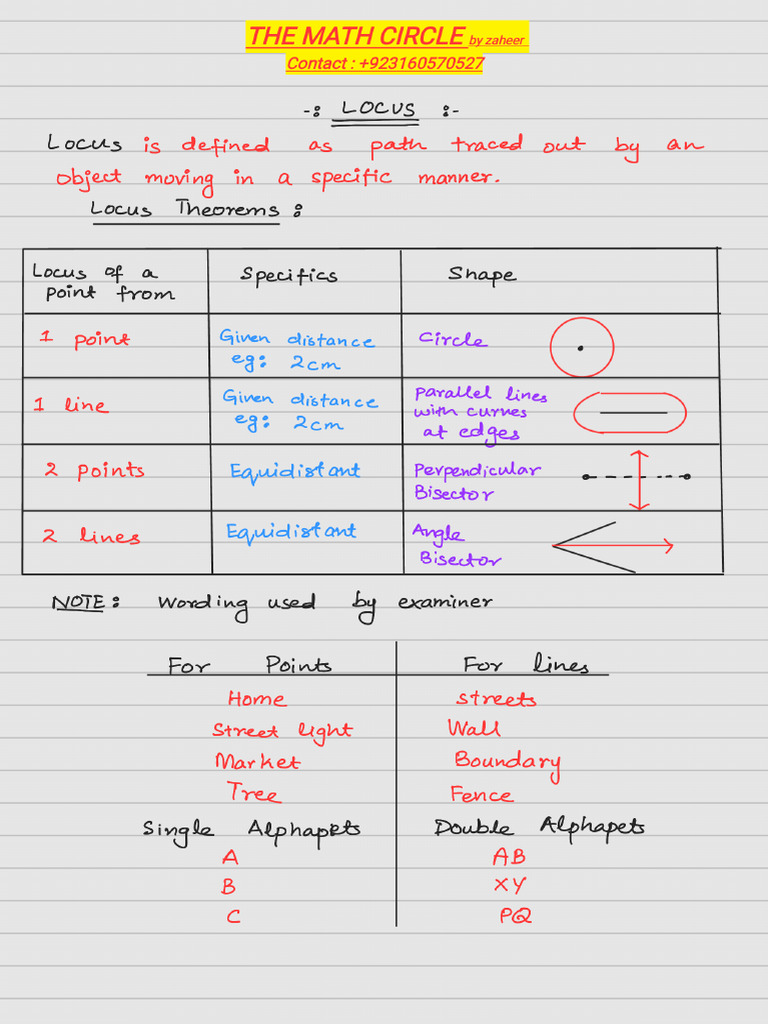 THE MATH CIRCLE by zaheer
Contact : +923160570527
-: LOCUS :-
Locus is defined as path traced out by an
object moving in a specific manner.
Locus Theorems :
Locus of a
point from
Specifics
Shape
1 point
Given distance
eg: 2cm
Circle
1 line
Given distance
eg: 2cm
parallel lines
with curves
at edges
2 points
Equidistant
Perpendicular
Bisector
2 lines
Equidistant
Angle
Bisector
NOTE: Wording used by examiner
For Points
For lines
Home
streets
Street light
Wall
Market
Boundary
Tree
Fence
Single Alphapets
Double Alphapets
A
AB
B
XY
C
PQ